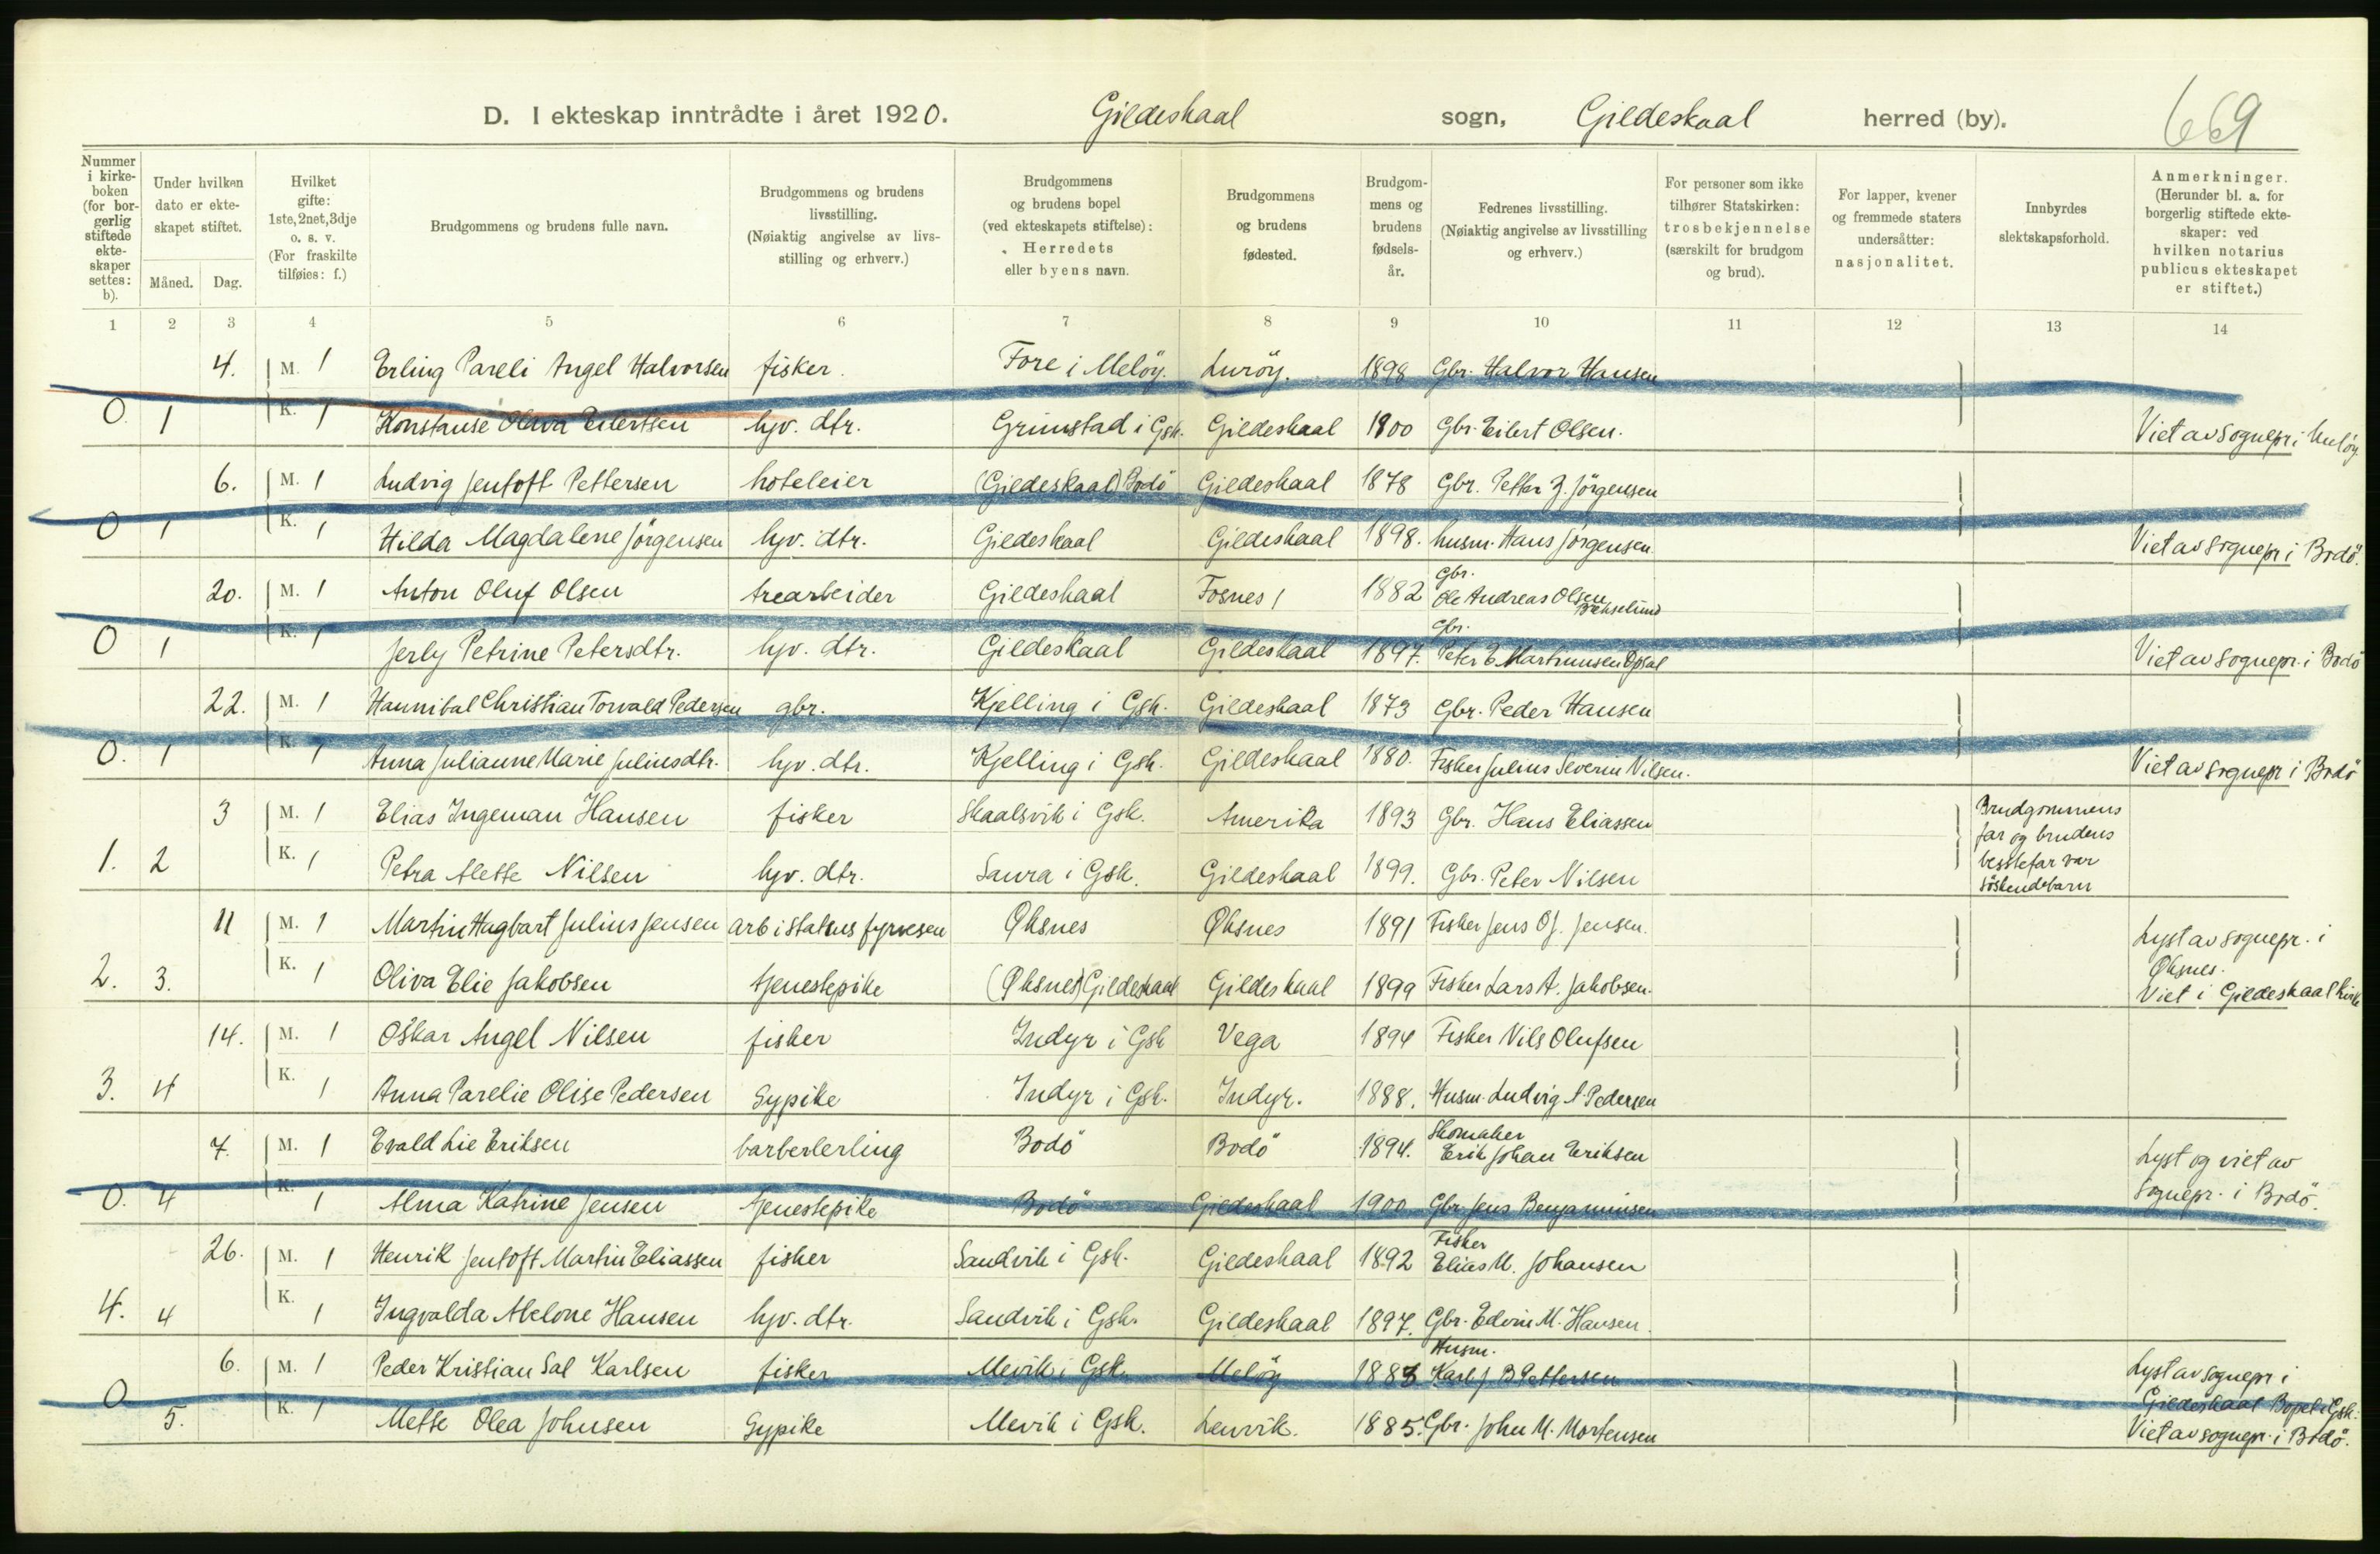 D. I ekteskap inntrådte i året 1920. Gildeskaal sogn, Gildeskaal herred (by). 669
Nummer i kirkeboken (for borgerlig stiftede ekteskaper settes: b).
Under hvilken dato er ekteskapet stiftet.
Måned. Dag.
Hvilket gifte: 1ste, 2net, 3dje o. s. v. (For fraskilte tilføies: f.)
Brudgommens og brudens fulle navn.
Brudgommens og brudens livsstilling. (Nøiaktig angivelse av livsstilling og erhverv.)
Brudgommens og brudens bopel (ved ekteskapets stiftelse): Herredets eller byens navn.
Brudgommens og brudens fødested.
Brudgommens og brudens fødselsår.
Fedrenes livsstilling. (Nøiaktig angivelse av livsstilling og erhverv.)
For personer som ikke tilhører Statskirken: trosbekjennelse (særskilt for brudgom og brud).
For lapper, kvener og fremmede staters undersåtter: nasjonalitet.
Innbyrdes slektskapsforhold.
Anmerkninger. (Herunder bl. a. for borgerlig stiftede ekteskaper: ved hvilken notarius publicus ekteskapet er stiftet.)
1 2 3 4 5 6 7 8 9 10 11 12 13 14
4. M. 1 Erling Pareli Angel Halvorsen fisker. Fore i Meløy. Lurøy. 1898 Gbr. Halvor Hansen
0 1 K. 1 Konstanse Olava Eilertsen hjv. dtr. Grimstad i Gsk. Gildeskaal 1900 Gbr. Eilert Olsen. Viet av sognepr i Meløy
6. M. 1 Ludvig Jentoft Pettersen hoteleier (Gildeskaal) Bodö Gildeskaal 1878 Gbr. Petter Z. Jörgensen
0 1 K. 1 Hilda Magdalene Jörgensen hjv. dtr. Gildeskaal Gildeskaal 1898. husm. Hans Jörgensen. Viet av sognepr i Bodö.
20. M. 1 Anton Oluf Olsen trearbeider Gildeskaal Fosnes 1882 Gbr. Ole Andreas Olsen
0 1 K. 1 Jerly Petrine Petersdtr. hjv. dtr. Gildeskaal Gildeskaal 1897. Gbr. Peter E. Martinusen Opsal Viet av sognepr. i Bodö
22. M. 1 Hannibal Christian Torvald Pedersen gbr. Kjelling i Gsk. Gildeskaal 1873 Gbr. Peder Hansen
0. 1 K. 1 Anna Julianne Marie Juliusdtr. hjv. dtr. Kjelling i Gsk. Gildeskaal 1880. Fisker Julius Severin Nilsen. Viet av sognepr i Bodö
3 M. 1 Elias Ingeman Hansen fisker Skaalsvik i Gsk. Amerika 1893 Gbr. Hans Eliassen Brudgommens far og brudens bestefar var söskendebarn
1. 2 K. 1 Petra Alette Nilsen hjv. dtr. Saura i Gsk. Gildeskaal 1899. Gbr. Peter Nilsen
11 M. 1 Martin Hagbart Julius Jensen arb i statens fyrvesen Øksnes Øksnes 1891 Fisker Jens O. J. Jensen. Lyst av sognepr. i Øksnes.
2. 3. K. 1 Oliva Elie Jakobsen tjenestepike (Øksnes) Gildeskaal Gildeskaal 1899 Fisker Lars A. Jakobsen. Viet i Gildeskaal kirke
14. M. 1 Oskar Angel Nilsen fisker Indyr i Gsk Vega 1894 Fisker Nils Olufsen
3. 4 K. 1 Anna Parelie Olise Pedersen Sypike Indyr i Gsk. Indyr. 1888. Husm. Ludvig A. Pedersen
7. M. 1 Evald Lie Eriksen barberlerling Bodö Bodö 1894. Skomaker Erik Johan Eriksen Lyst og viet av
0. 4 K. 1 Alma Katrine Jensen tjenestepike Bodö Gildeskaal 1900 Gbr Jens Benjaminsen sognepr. i Bodö.
26. M. 1 Henrik Jentoft Martin Eliassen fisker Sandvik i Gsk. Gildeskaal 1892 Fisker Elias M. Johansen
4. 4 K. 1 Ingvalda Abelone Hansen hjv. dtr. Sandvik i Gsk. Gildeskaal 1897. Gbr. Edvin M. Hansen.
6. M. 1 Peder Kristian Sal Karlsen fisker Mevik i Gsk. Meløy 1883 Husm. Karl J. B Pettersen Lyst av sognepr i Gildeskaal Bopel i Gsk.
0 5. K. 1 Mette Olea Johnsen Sypike Mevik i Gsk. Lenvik. 1885. Gbr. John M. Mortensen Viet av sognepr. i Bodö.